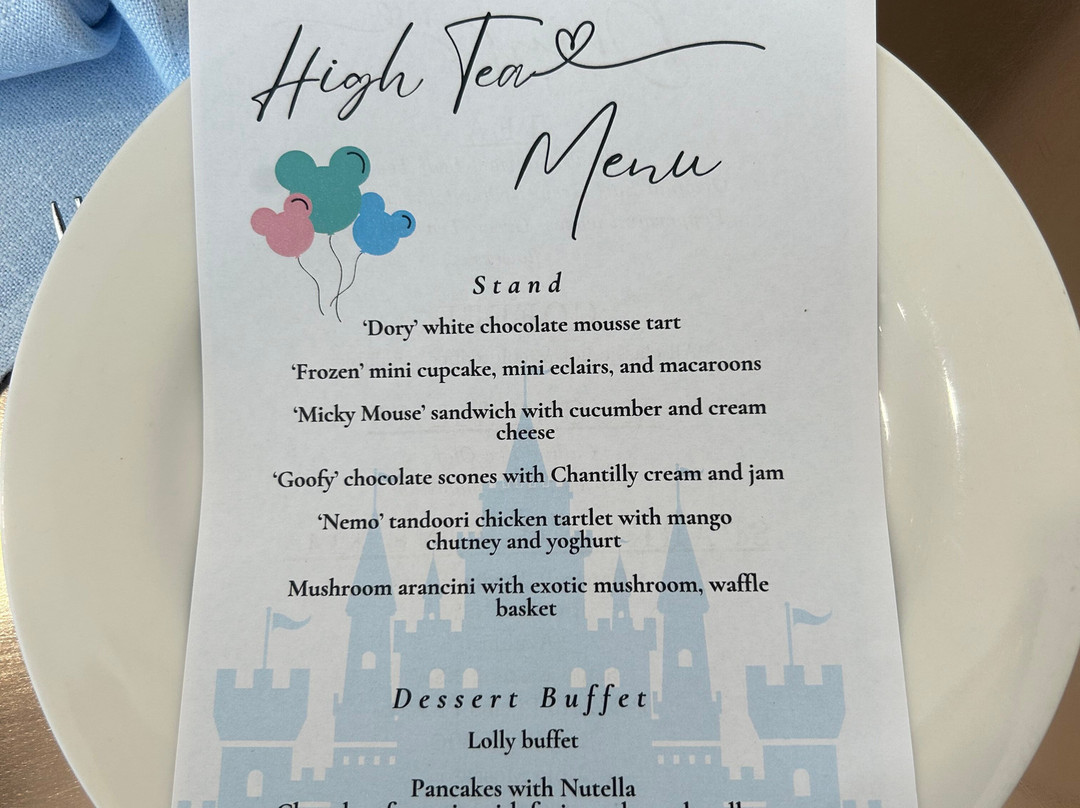 High Tea
Menu
Stand
‘Dory’ white chocolate mousse tart
‘Frozen’ mini cupcake, mini eclairs, and macaroons
‘Micky Mouse’ sandwich with cucumber and cream
cheese
‘Goofy’ chocolate scones with Chantilly cream and jam
‘Nemo’ tandoori chicken tartlet with mango
chutney and yoghurt
Mushroom arancini with exotic mushroom, waffle
basket
Dessert Buffet
Lolly buffet
Pancakes with Nutella